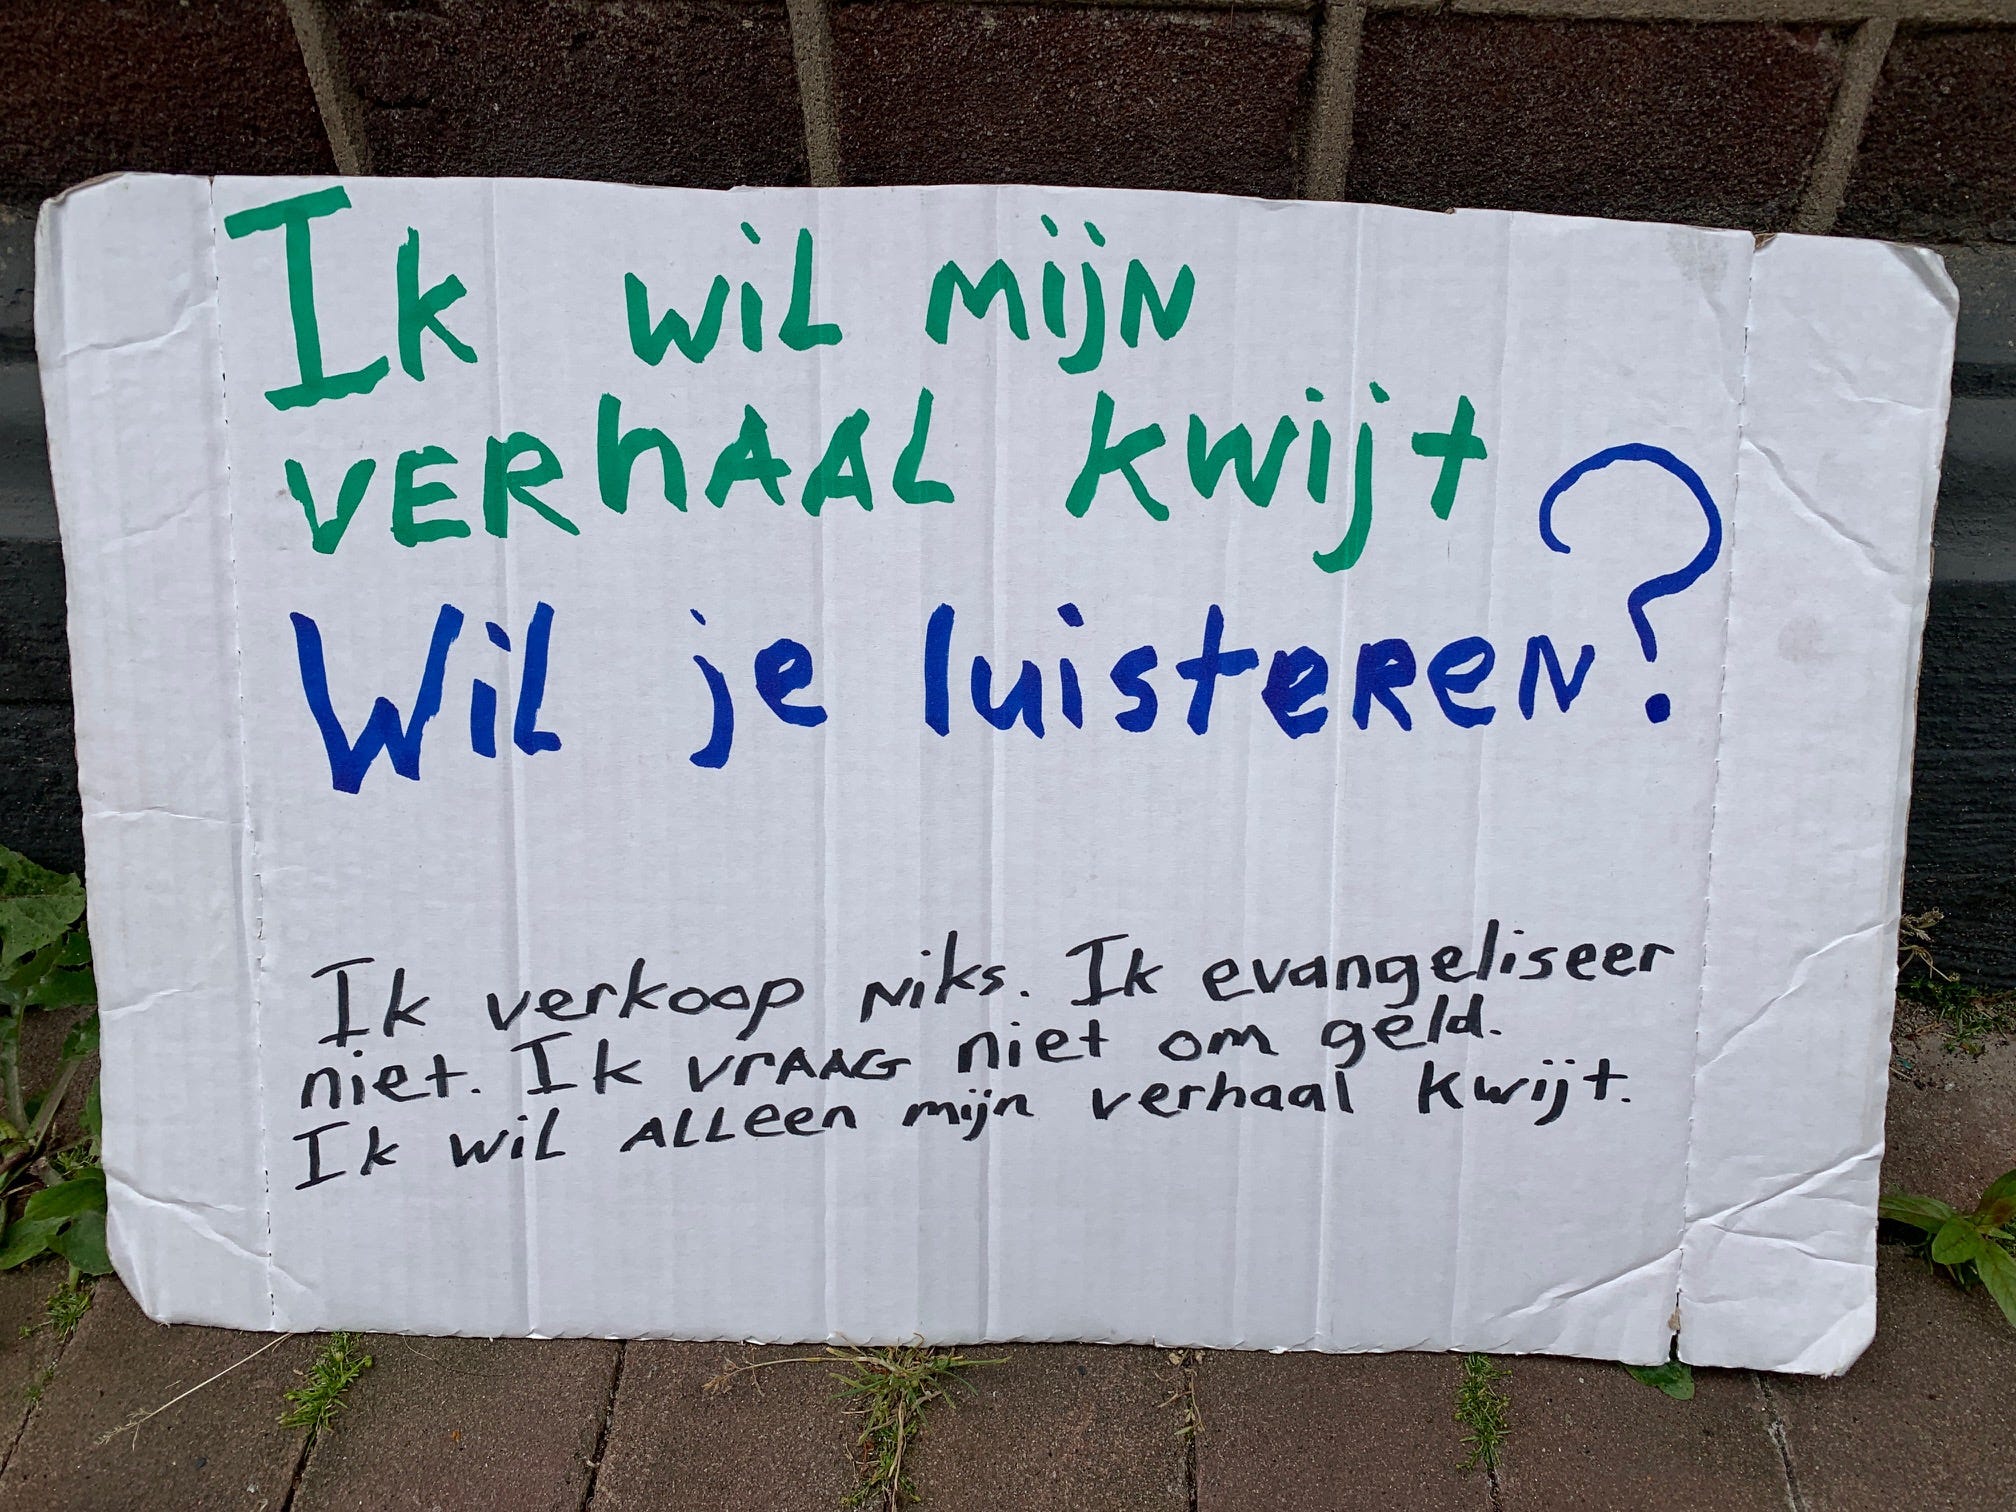 Ik wil mijn
verhaal kwijt
Wil je luisteren?
Ik verkoop niks. Ik evangeliseer
niet. Ik vraag niet om geld.
Ik wil alleen mijn verhaal kwijt.